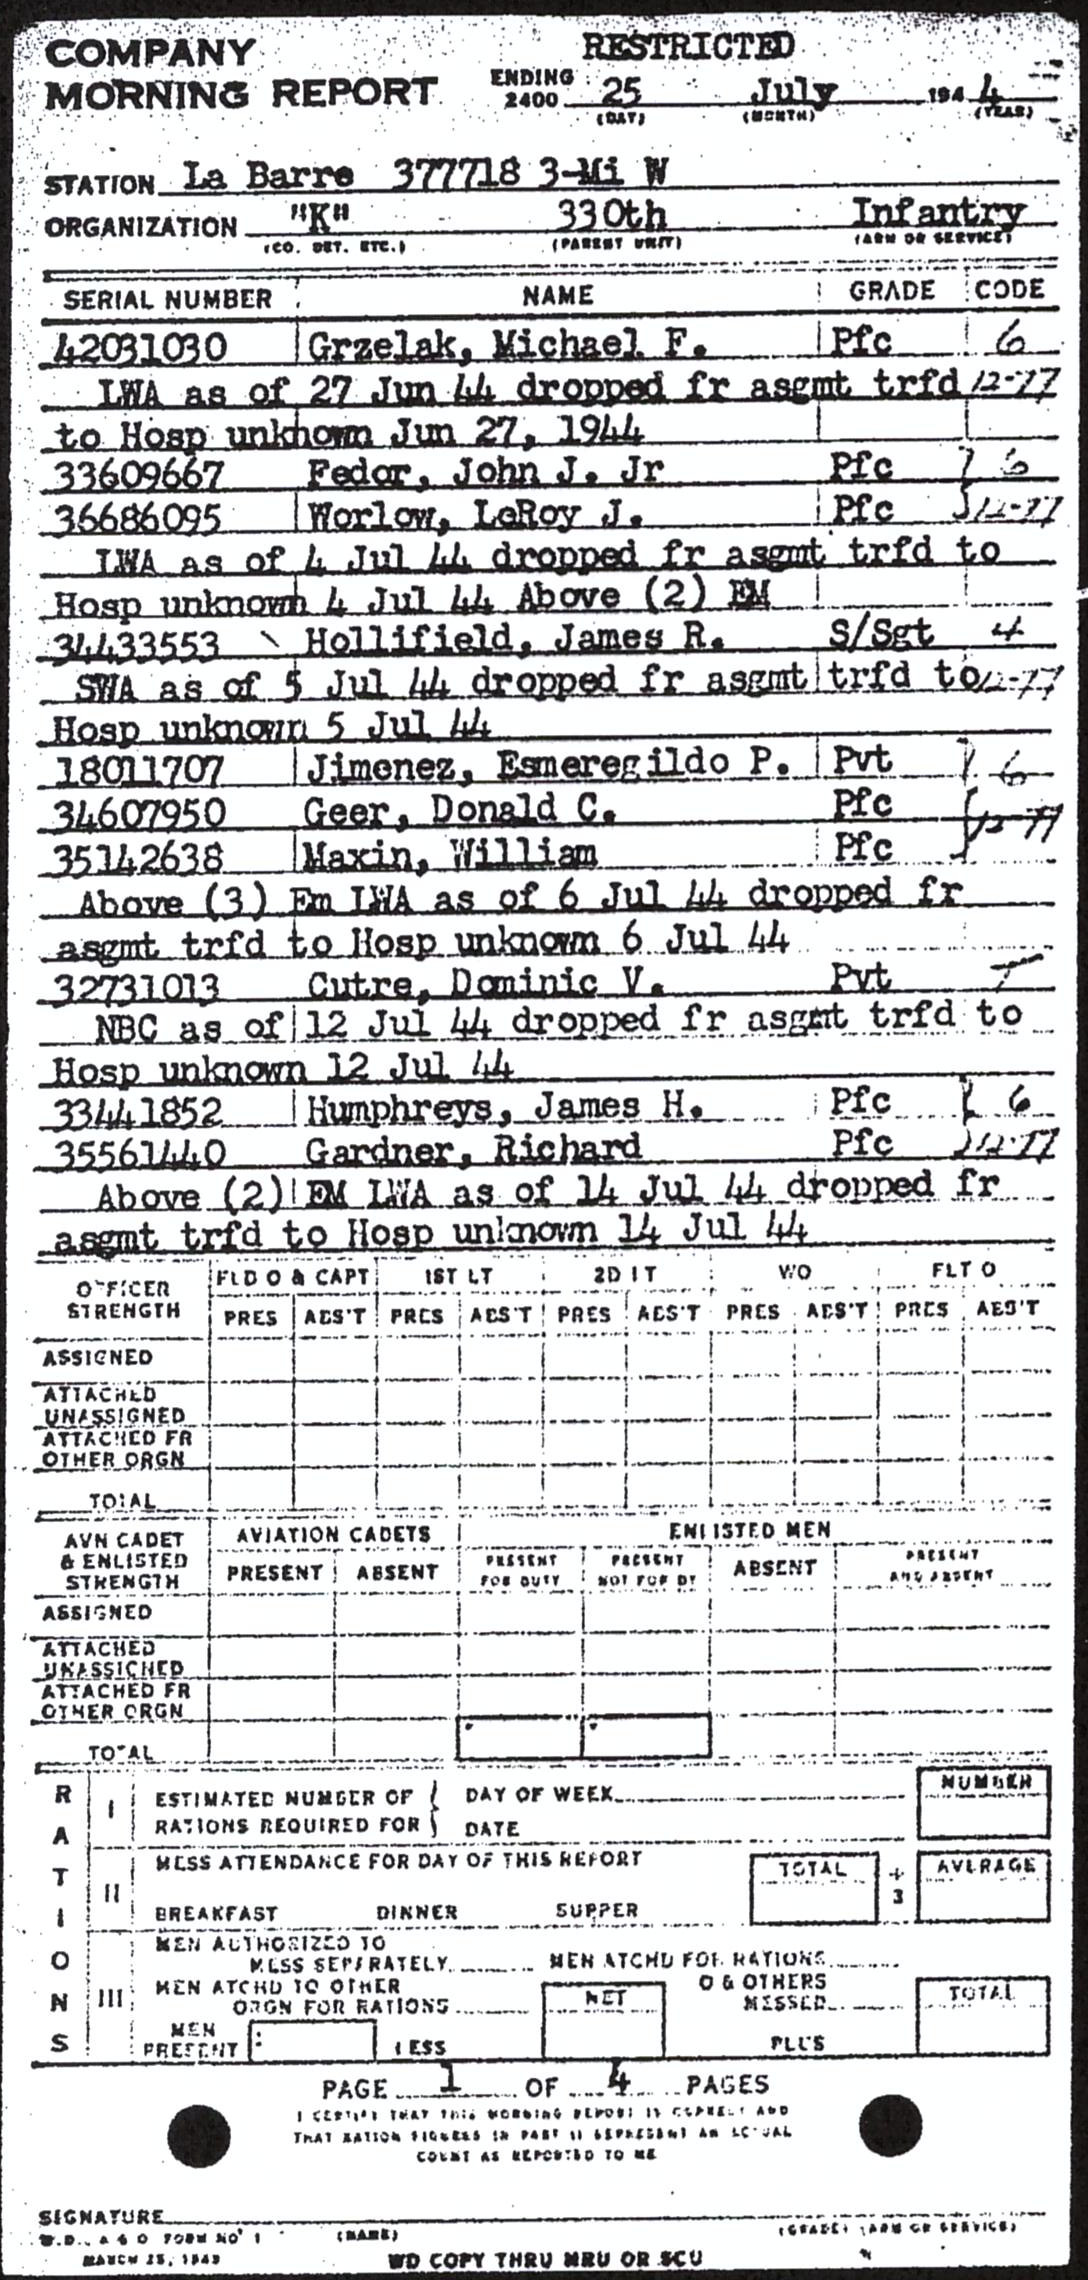 COMPANY RESTRICTED
MORNING REPORT ENDING 2400 25 July 1944
(DAY) (MONTH) (YEAR)
STATION La Barre 377718 3-Mi W
ORGANIZATION "K" 330th Infantry
(CO. DET. ETC.) (PARENT UNIT) (ARM OR SERVICE)
SERIAL NUMBER NAME GRADE CODE
42031030 Grzelak, Michael F. Pfc 6
LWA as of 27 Jun 44 dropped fr asgmt trfd 12-77
to Hosp unknown Jun 27, 1944
33609667 Fedor, John J. Jr Pfc 6
36686095 Worlow, LeRoy J. Pfc 12-77
LWA as of 4 Jul 44 dropped fr asgmt trfd to
Hosp unknown 4 Jul 44 Above (2) EM
34433553 Hollifield, James R. S/Sgt 4
SWA as of 5 Jul 44 dropped fr asgmt trfd to 12-77
Hosp unknown 5 Jul 44
18011707 Jimenez, Esmeregildo P. Pvt 6
34607950 Geer, Donald C. Pfc 12-77
35142638 Maxin, William Pfc
Above (3) Em LWA as of 6 Jul 44 dropped fr
asgmt trfd to Hosp unknown 6 Jul 44
32731013 Cutre, Dominic V. Pvt T
NBC as of 12 Jul 44 dropped fr asgmt trfd to
Hosp unknown 12 Jul 44
33441852 Humphreys, James H. Pfc 6
35561440 Gardner, Richard Pfc 12-77
Above (2) EM LWA as of 14 Jul 44 dropped fr
asgmt trfd to Hosp unknown 14 Jul 44
OFFICER STRENGTH FLD O & CAPT 1ST LT 2D LT WO FLT O
PRES ABS'T PRES ABS'T PRES ABS'T PRES ABS'T PRES ABS'T
ASSIGNED
ATTACHED
UNASSIGNED
ATTACHED FR
OTHER ORGN
TOTAL
AVN CADET & ENLISTED STRENGTH AVIATION CADETS ENLISTED MEN
PRESENT ABSENT PRESENT FOR DUTY PRESENT NOT FOR DY ABSENT PRESENT AND ABSENT
ASSIGNED
ATTACHED
UNASSIGNED
ATTACHED FR
OTHER ORGN
TOTAL
RATIONS
I ESTIMATED NUMBER OF DAY OF WEEK NUMBER
RATIONS REQUIRED FOR DATE
II MESS ATTENDANCE FOR DAY OF THIS REPORT TOTAL ÷ 3 AVERAGE
BREAKFAST DINNER SUPPER
III MEN AUTHORIZED TO
MESS SEPARATELY MEN ATCHD FOR RATIONS
MEN ATCHD TO OTHER NET O & OTHERS TOTAL
ORGN FOR RATIONS MESSED
MEN
PRESENT LESS PLUS
PAGE 1 OF 4 PAGES
I CERTIFY THAT THIS MORNING REPORT IS CORRECT AND
THAT RATION FIGURES IN PART II REPRESENT AN ACTUAL
COUNT AS REPORTED TO ME
SIGNATURE
W.D., A G O FORM NO 1 (NAME) (GRADE) (ARM OR SERVICE)
MARCH 25, 1943 WD COPY THRU MRU OR SCU